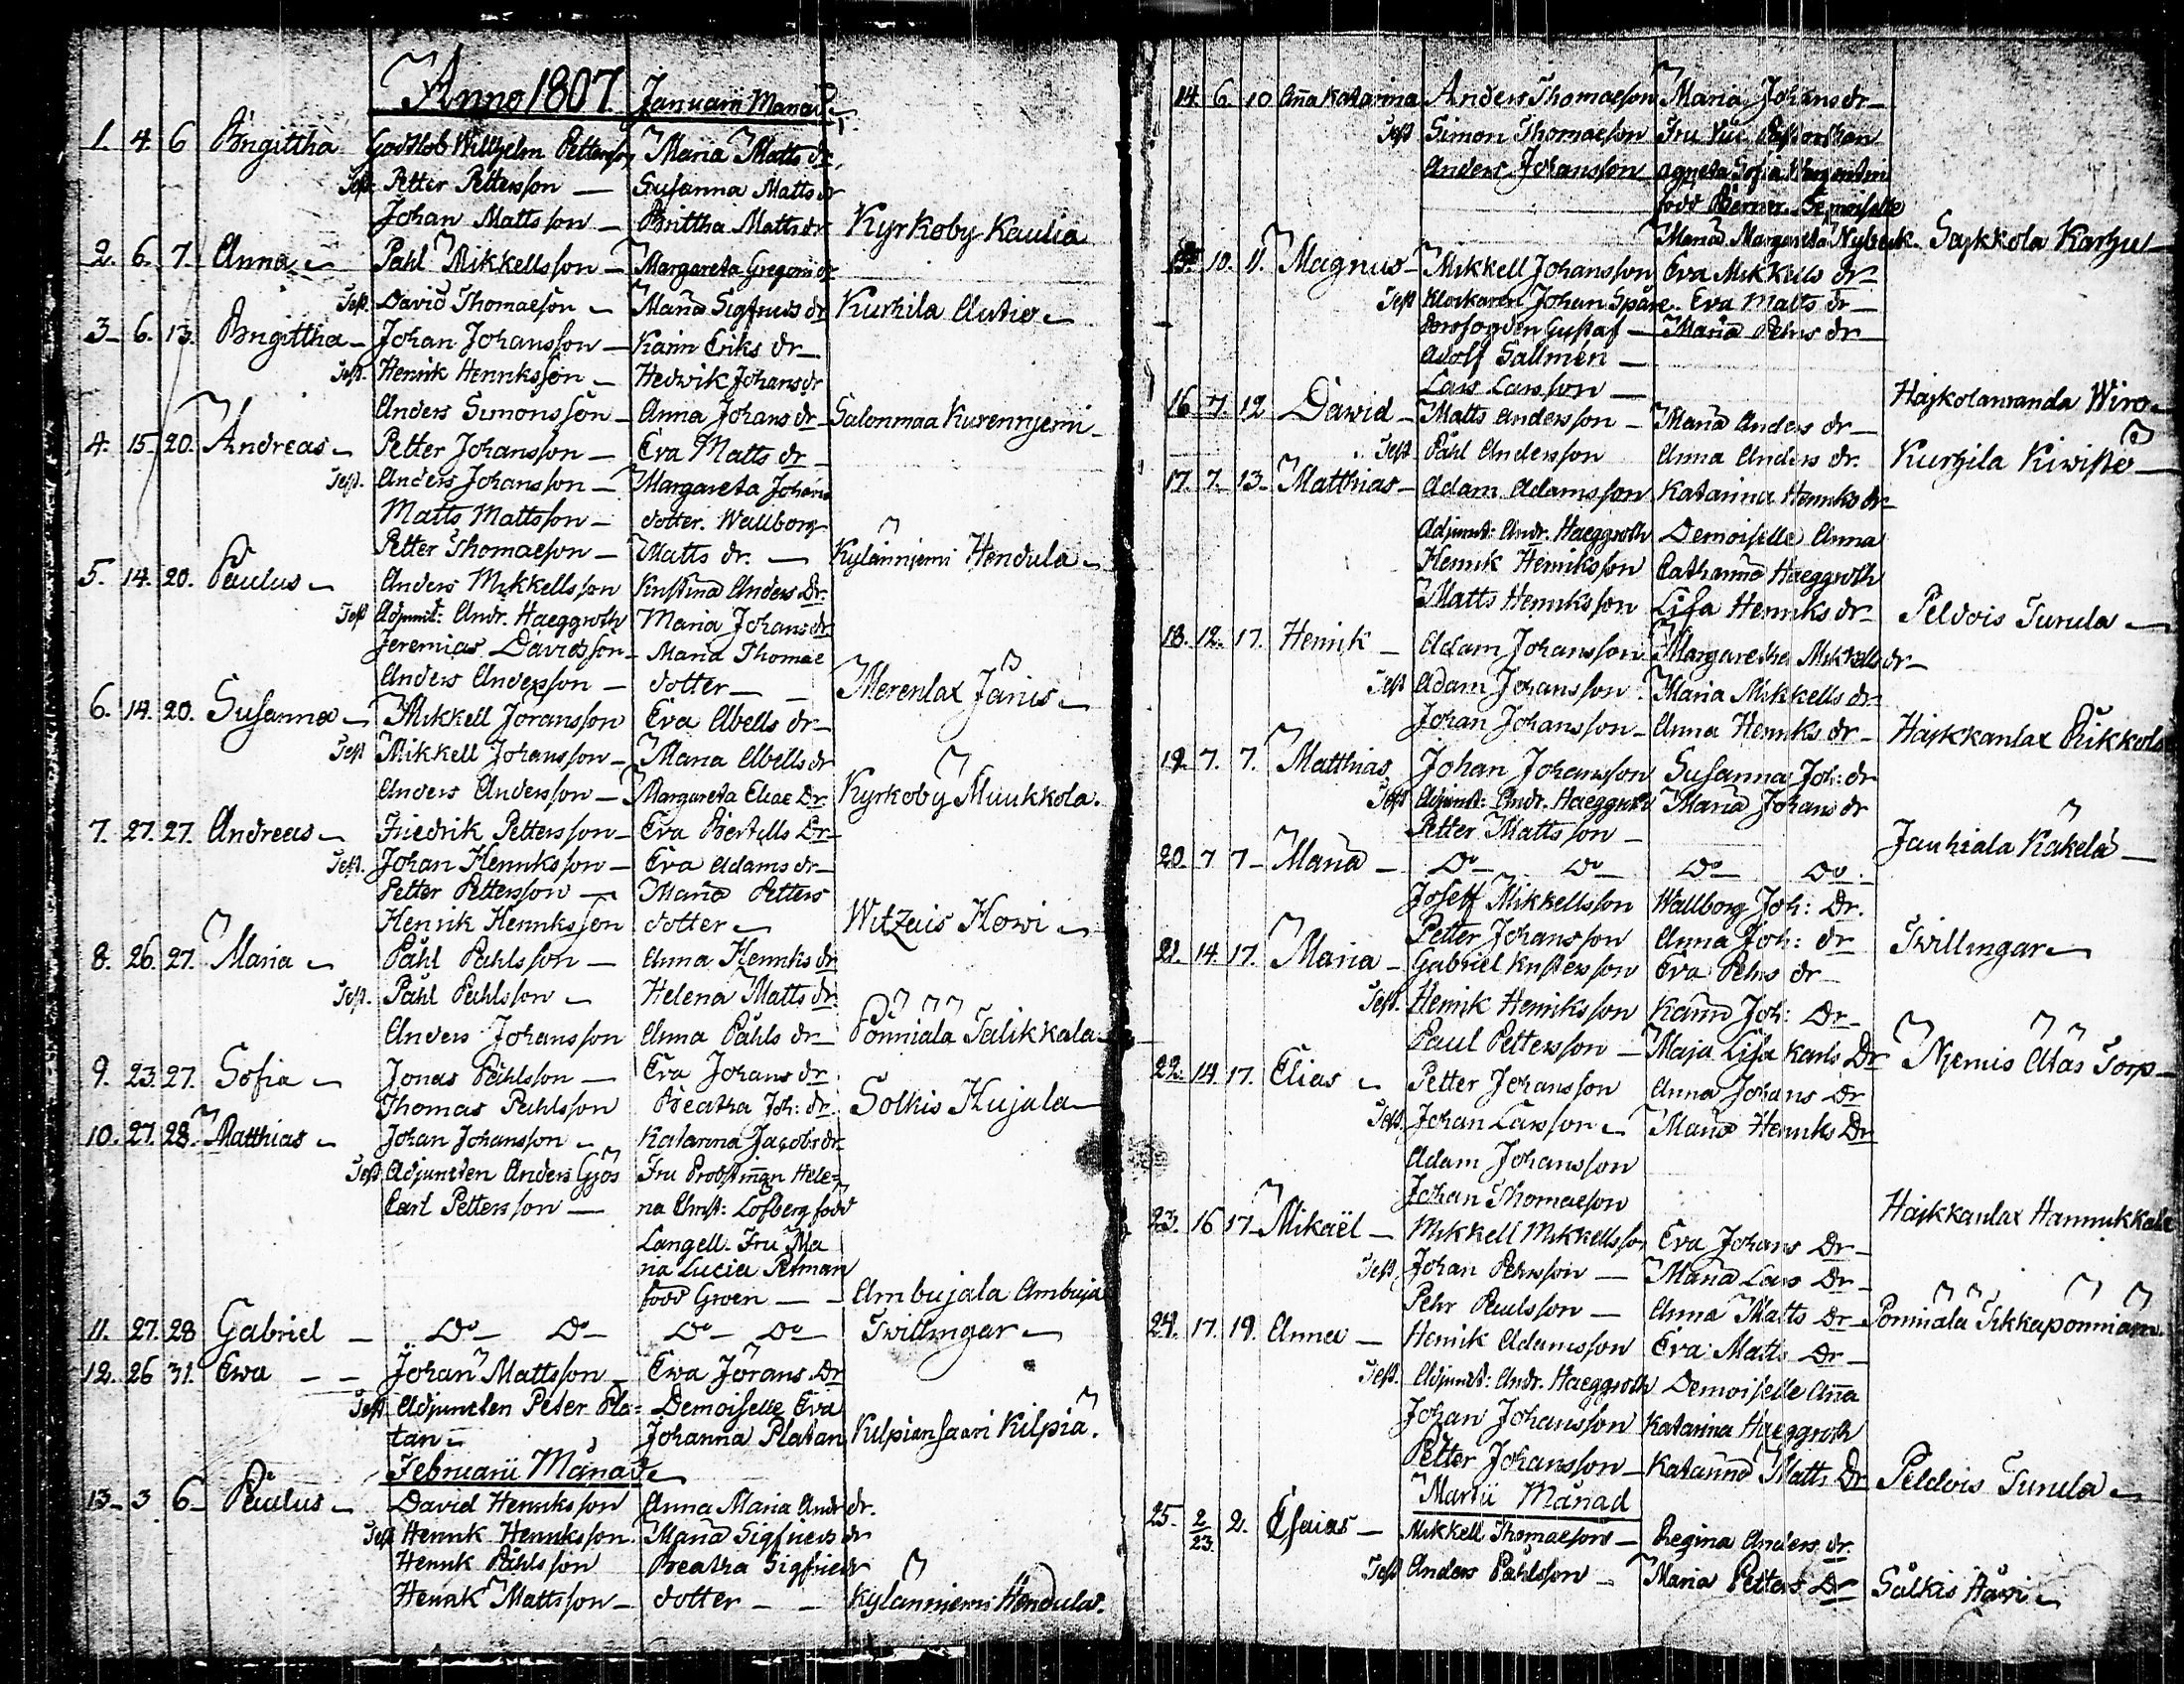 Anno 1807. Januarii Månad
1. 4. 6 Brigittha Gottlob Willhelm Pettersson Maria Matts dr
Test. Petter Pettersson — Susanna Matts dr
Johan Mattsson — Brittha Matts dr Kyrkoby Kaulia
2. 6. 7. Anna Påhl Mikkellsson — Margareta Gregorii dr
Test. David Thomaeson Maria Sigfrieds dr Kurkila Autio
3. 6. 13. Brigittha — Johan Johansson — Karin Eriks dr
Test. Henrik Henriksson Hedvik Johans dr
Anders Simonsson — Anna Johans dr — Salonmaa Kurennjemi
4. 15. 20. Andreas Petter Johansson — Eva Matts dr
Test. Anders Johansson — Margareta Johans
Matts Mattsson — dotter. Wallborg
Petter Thomaeson — Matts dr. — Kylännjemi Hendula
5. 14. 20. Paulus Anders Mikkellsson Kristina Anders Dr.
Test Adjunct: Andr. Haeggroth Maria Johans dr
Jeremias Davidsson — Maria Thomae
Anders Andersson — dotter — Merenlax Järius
6. 14. 20. Susanna Mikkell Joransson Eva Abells dr
Test Mikkell Johansson — Maria Abells dr
Anders Andersson — Margareta Eliae Dr. Kyrkoby Muukkola.
7. 27. 27. Andreas Friedrik Pettersson — Eva Bertills Dr
Test. Johan Henriksson — Eva Adams dr
Petter Pettersson — Maria Petters
Henrik Henriksson dotter Witzais Howi
8. 26. 27. Maria Påhl Påhlsson — Anna Henriks dr
Test. Påhl Påhlsson Helena Matts dr.
Anders Johansson Anna Påhls dr — Pönniälä Talikkala
9. 23. 27. Sofia Jonas Påhlsson — Eva Johans dr
Thomas Påhlsson Beatha Joh: dr. Solkis Kujala
10. 27. 28. Matthias Johan Johansson Katarina Jacobs dr
Test. Adjuncten Anders Gjös Fru Probstinnan Hele=
Carl Pettersson — na Christ: Löfberg född
Langell. Fru Ma
ria Lucia Perman
född Gwen — Ambujala Ambuja
11. 27. 28 Gabriel — Do Do Do Do Twillingar
12. 26 31. Ewa — Johan Mattsson Ewa Jörans Dr
Test Adjuncten Peter Pla= Demoiselle Eva
tan Johanna Platan Kilpiansaari Kilpiä.
Februarii Månad
13. 3 6 Paulus David Henriksson Anna Maria Andr dr.
Test Henrik Henriksson. Maria Sigfrieds dr
Henrik Påhlsson Beatha Sigfrieds
Henrik Mattsson — dotter — Kylännjemi Hendula.
14. 6. 10 Aña Katarina Anders Thomaeson Maria Johans dr
Test Simon Thomaeson Fru Vice Pastorskan
Anders Johansson Agneta Sofia
född Berner. Demoiselle
Maria Margareta Nybeck. Sajkkola Karhu
15. 10. 11. Magnus — Mikkell Johansson Eva Mikkells dr
Test Klockaren Johan Spåre. Eva Matts dr
Gustaf — Maria Pehrs dr
Adolf Sallmén —
Lars Larsson — Hajkolanranda Wiro
16 7. 12 Dawid — Matts Andersson — Maria Anders dr
Test Påhl Andersson Anna Anders dr. Kurhila Kiwistö
17. 7. 13. Matthias — Adam Adamsson Katarina Henriks dr
Adjunct: Andr. Haeggroth Demoiselle Anna
Henrik Henriksson Catharina Haeggroth
Matts Henriksson Lisa Henriks dr Peldois Turula
18. 12. 17. Henrik — Adam Johansson Margaretha Mikkells dr
Test Adam Johansson Maria Mikkells dr
Johan Johansson — Anna Henriks dr — Hajkkanlax Pukkola
19. 7. 7. Matthias Johan Johansson Susanna Joh: dr
Test Adjunct: Andr. Haeggroth Maria Johans dr
Petter Mattsson — Jauhiala Käkelä
20. 7 7 Maria — Do Do Do Do
Joseff Mikkellsson Wallborg Joh: Dr.
Petter Johansson Anna Joh: dr Twillingar
21. 14. 17. Maria — Gabriel Kristersson Eva Pehrs dr
Test. Henrik Henriksson Karin Joh: Dr
Paul Pettersson — Maja Lisa Karls Dr Njemis Alas Torp
22. 14 17. Elias Petter Johansson Anna Johans Dr
Test. Johan Larsson Maria Henriks Dr
Adam Johansson
Johan Thomaeson Hajkkanlax Hannukkala
23. 16 17 Mikaël — Mikkell Mikkellsson Eva Johans Dr
Test Johan Pehrsson — Maria Lars Dr
Pehr Paulsson — Anna Matts Dr Pönniälä Sikkapönniäin
24. 17. 19. Anna — Henrik Adamsson Eva Matts Dr
Test. Adjunct: Andr. Haeggroth Demoiselle Aña
Johan Johansson Katarina Haeggroth
Petter Johansson — Katarina Matts Dr Peldois Turula
Martii Månad
25. 2/23. 2. Esaias — Mikkell Thomaeson — Regina Anders dr.
Test Anders Påhlsson — Maria Petters Dr Sälkis Häwi